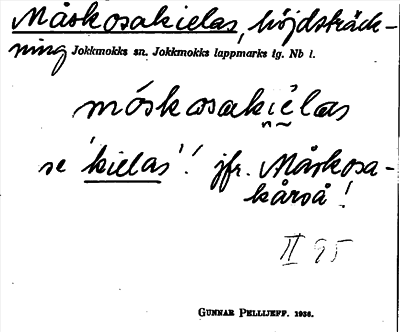 Måskosakielas, höjdsträck-
ning Jokkmokks sn. Jokkmokks lappmarks tg. Nb l.
móskosakiėlas
se 'kielas'! jfr. Måskosa-
kårså!
II 95
GUNNAR PELLIJEFF. 1936.